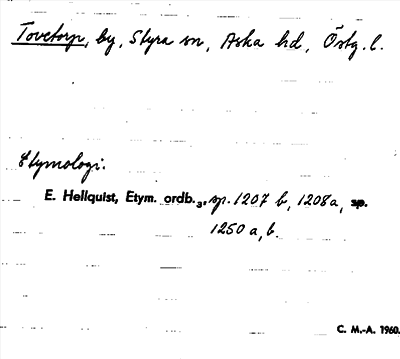 Tovetorp, by, Styra sn, Aska hd, Östg. l.
Etymologi.
E. Hellquist, Etym. ordb. 3, sp. 1207 b, 1208a, sp.
1250 a, b.
C. M.-A. 1960.